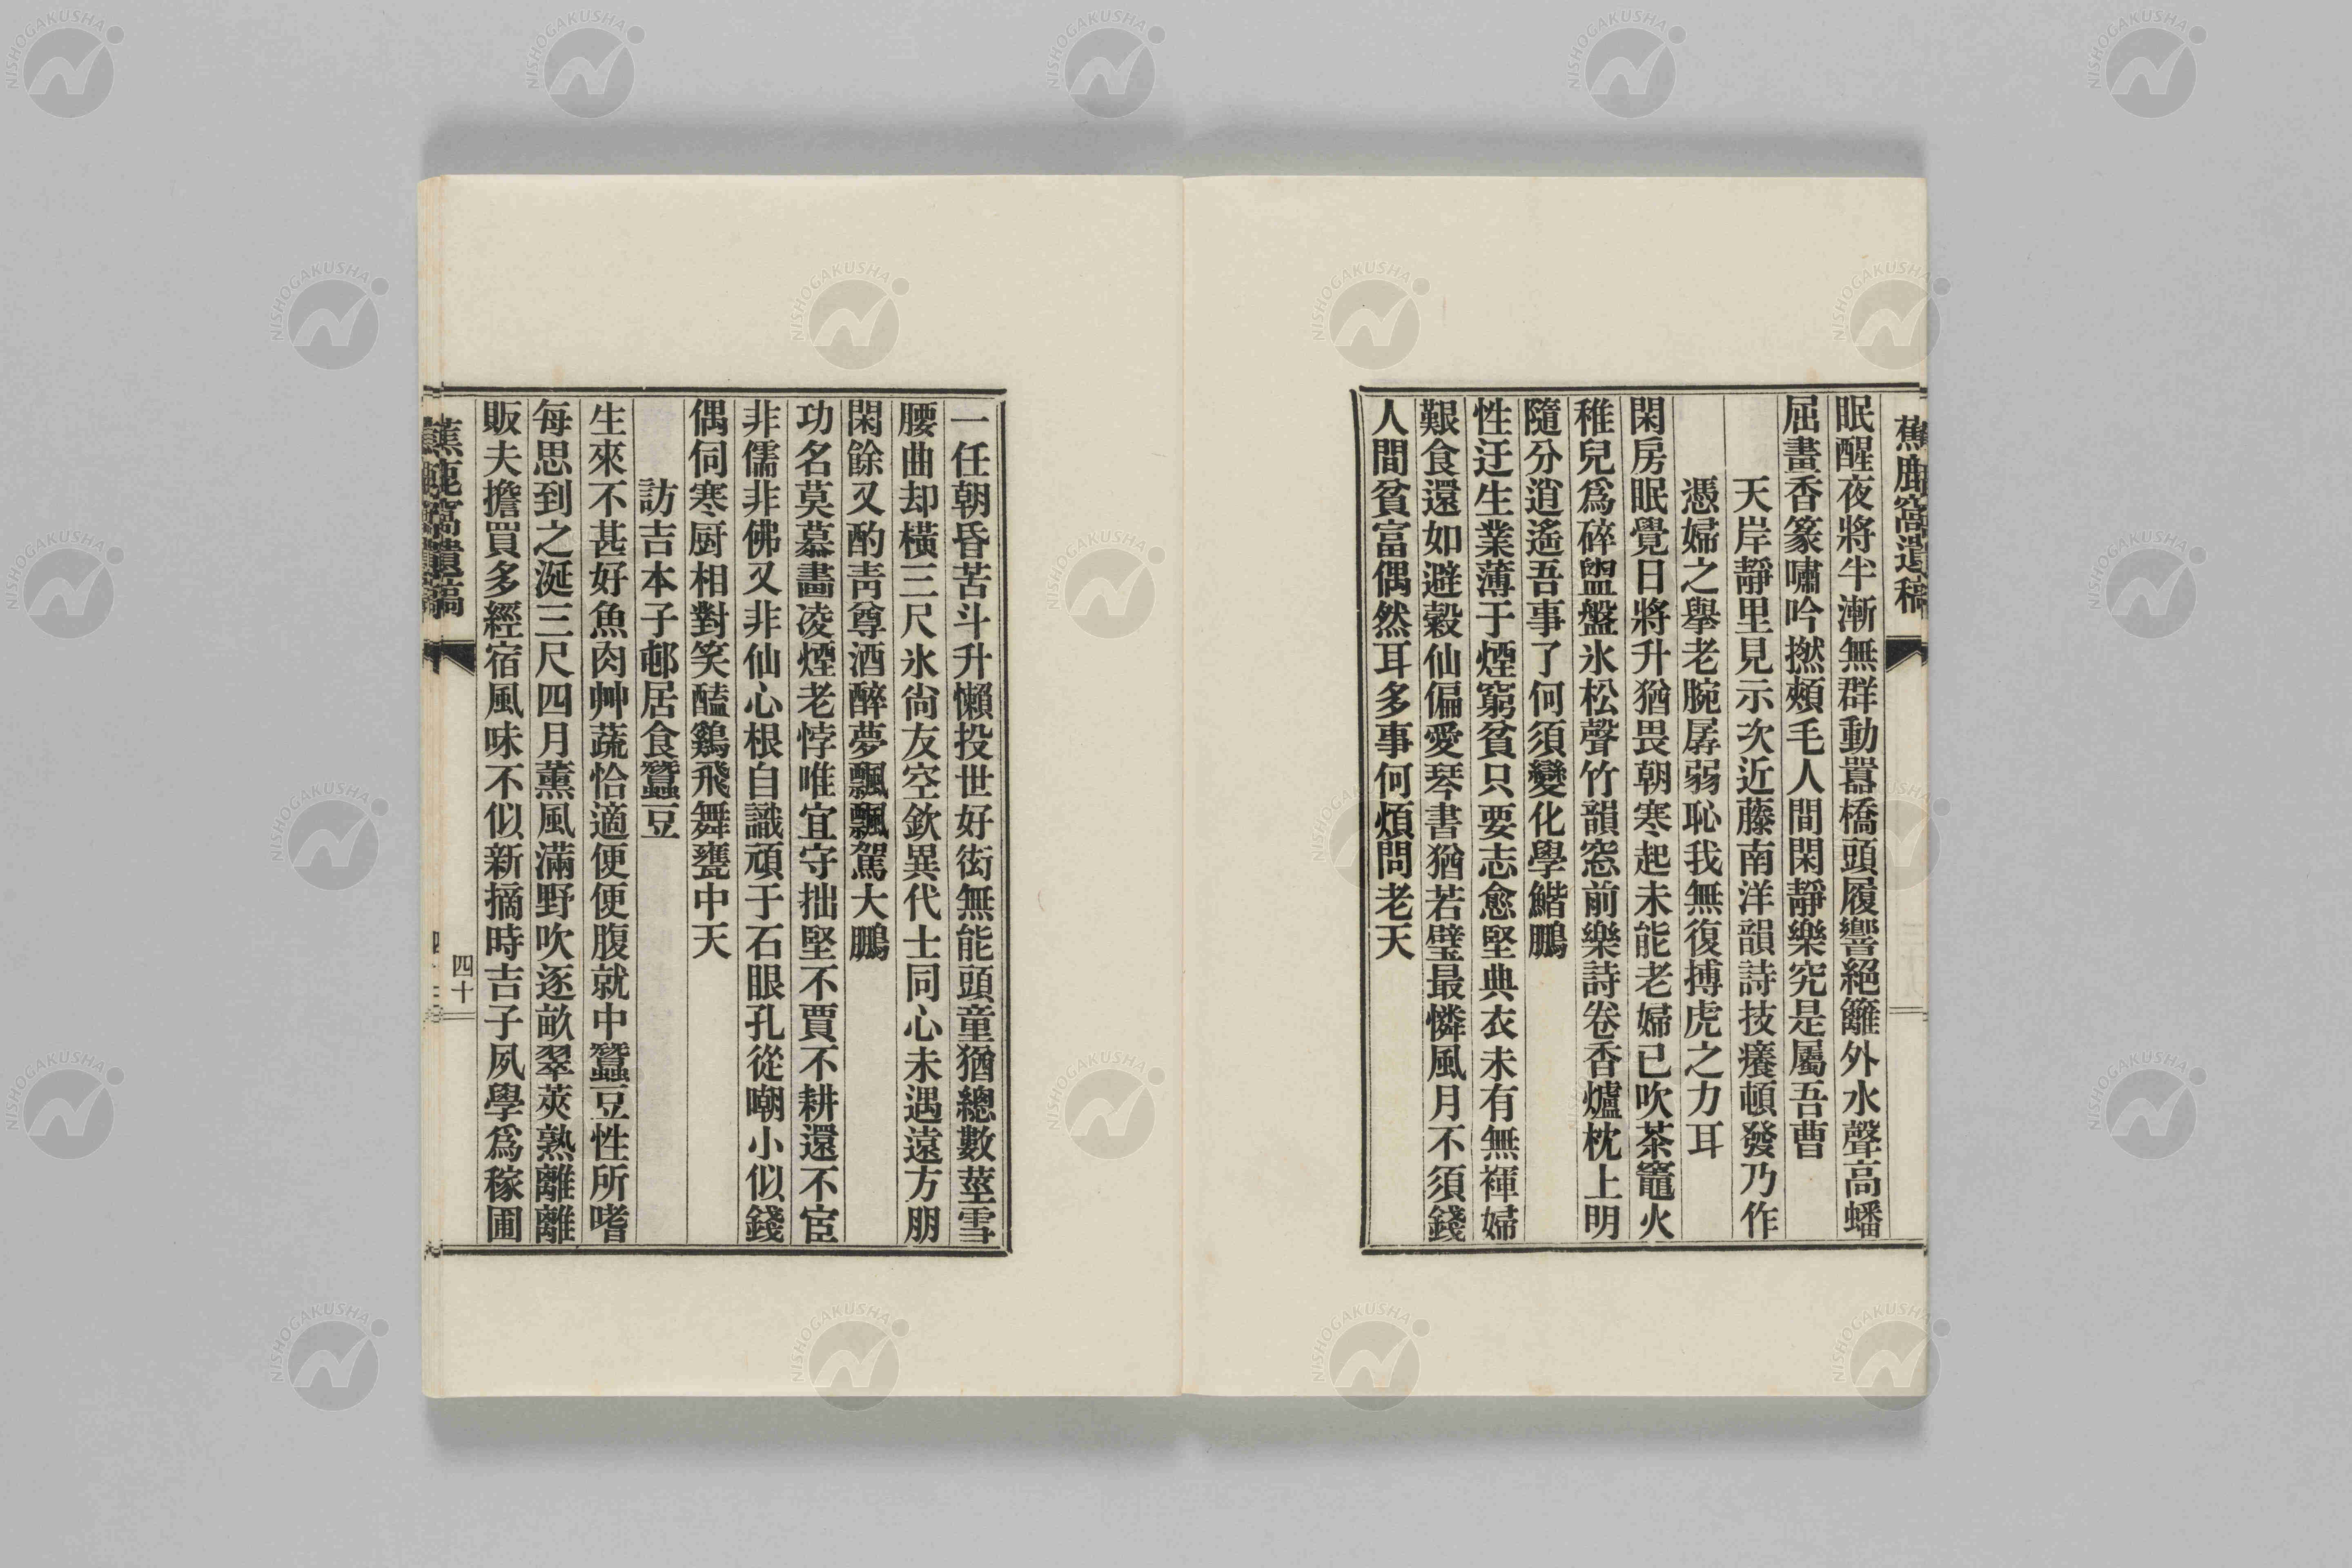 蕉鹿窩遺稿
眠醒夜將半漸無群動囂橋頭履響絕籬外水聲高蟠
屈畫香篆嘯吟撚頰毛人間閑靜樂究是屬吾曹
天岸靜里見示次近藤南洋韻詩技癢頓發乃作
憑婦之擧老腕孱弱恥我無復搏虎之力耳
閑房眠覺日將升猶畏朝寒起未能老婦已吹茶竈火
稚兒爲碎盥盤氷松聲竹韻窓前樂詩卷香爐枕上明
隨分逍遙吾事了何須變化學鯤鵬
性迂生業薄于煙窮貧只要志愈堅典衣未有無褌婦
艱食還如避穀仙偏愛琴書猶若璧最憐風月不須錢
人間貧富偶然耳多事何煩問老天
一任朝昏苦斗升懶投世好衒無能頭童猶總數莖雪
腰曲却橫三尺氷尙友空欽異代士同心未遇遠方朋
閑餘又酌靑尊酒醉夢飄飄駕大鵬
功名莫慕畵凌煙老悖唯宜守拙堅不賈不耕還不宦
非儒非佛又非仙心根自識頑于石眼孔從嘲小似錢
偶伺寒厨相對笑醯鷄飛舞甕中天
訪吉本子邨居食蠶豆
生來不甚好魚肉艸蔬恰適便便腹就中蠶豆性所嗜
每思到之涎三尺四月薰風滿野吹逐畝翠莢熟離離
販夫擔買多經宿風味不似新摘時吉子夙學爲稼圃
蕉鹿窩遺稿
四十